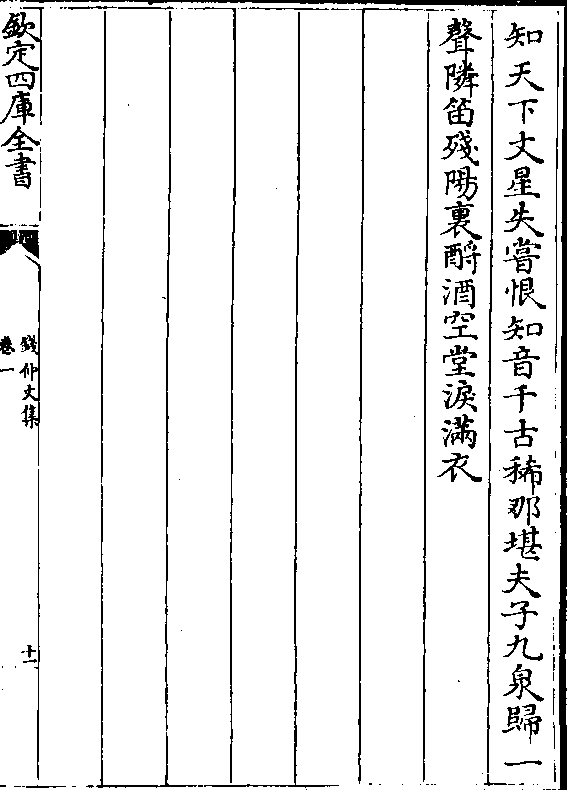 知天下文星失嘗恨知音千古稀那堪夫子九泉歸一
聲隣笛殘陽裏酹酒空堂淚滿衣
欽定四庫全書
錢仲文集
卷一
十一